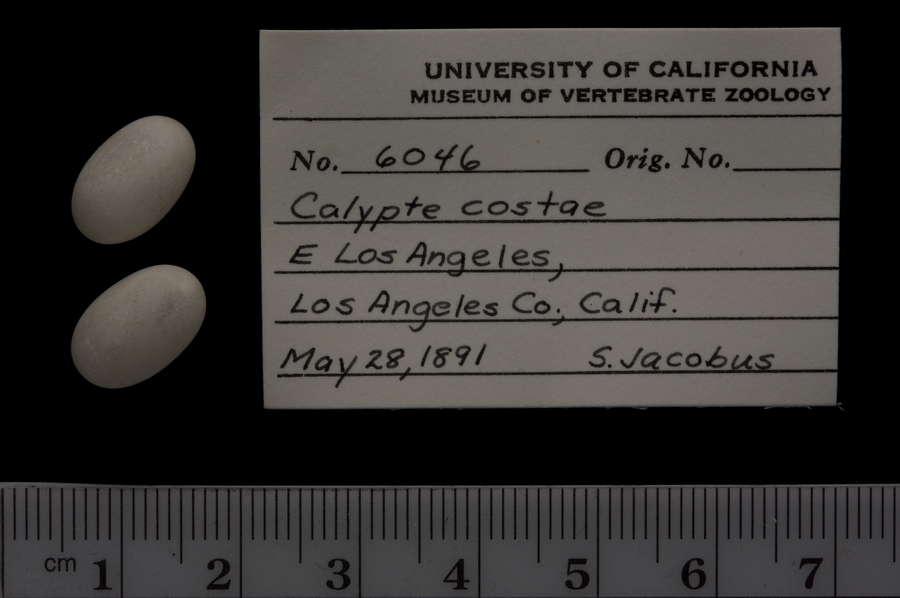 UNIVERSITY OF CALIFORNIA
MUSEUM OF VERTEBRATE ZOOLOGY
No. 6046 Orig. No.
Calypte costae
E Los Angeles,
Los Angeles Co., Calif.
May 28, 1891 S. Jacobus
cm 1 2 3 4 5 6 7